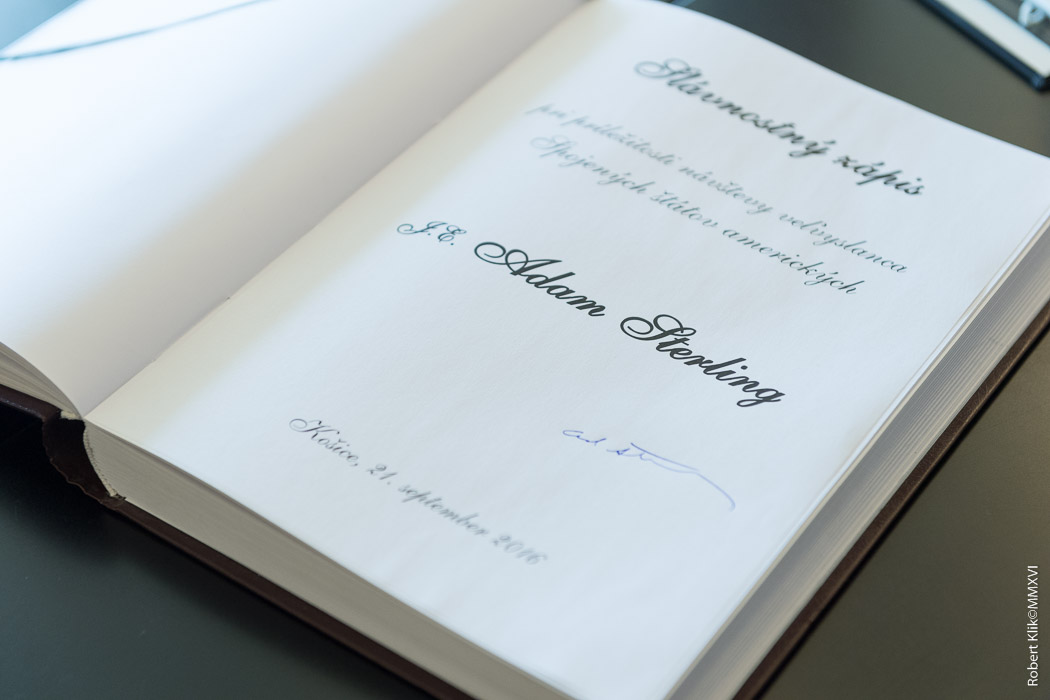 Slávnostný zápis
pri príležitosti návštevy veľvyslanca
Spojených štátov amerických
J.E. Adam Sterling
Košice, 21. september 2016
Robert Klik©MMXVI